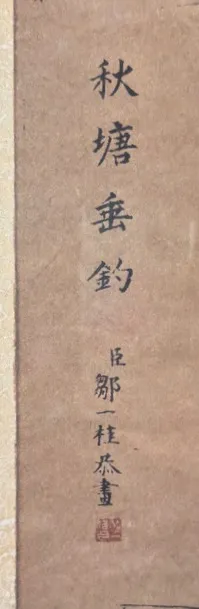 秋塘垂釣
臣鄒一桂恭畫